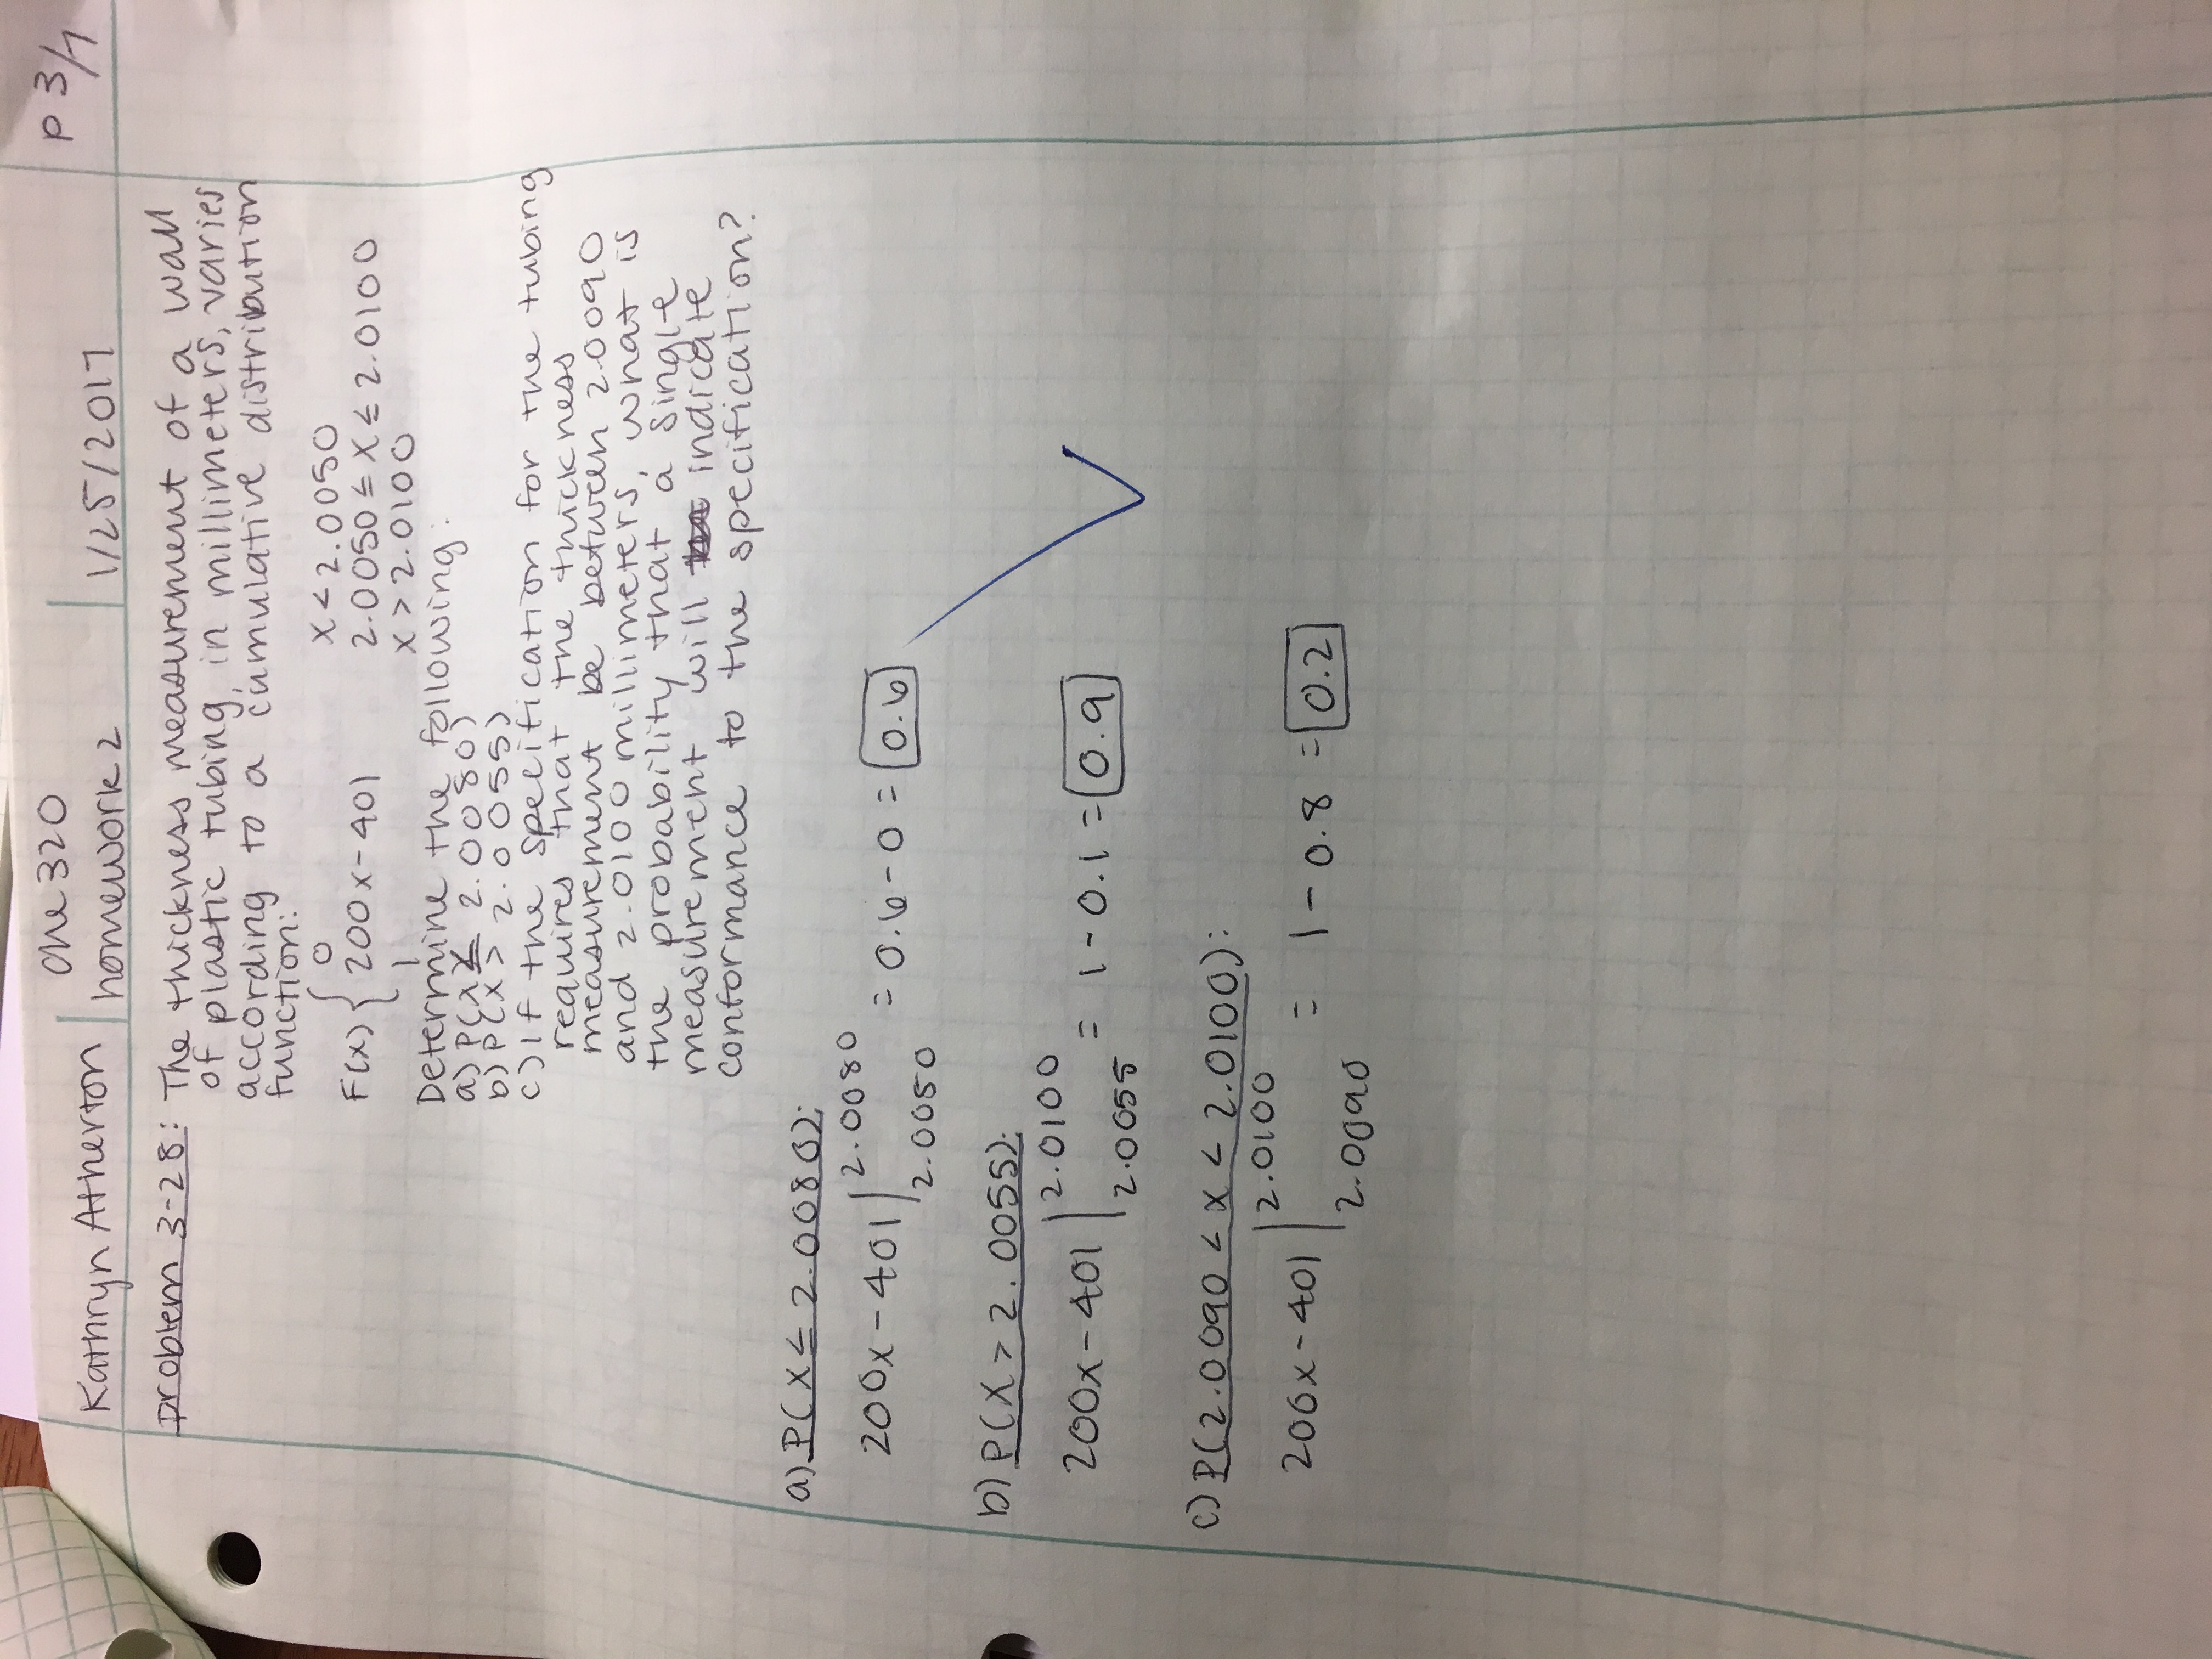 Kathryn Atherton
che 320
homework 2
1/25/2017
p 3/7
problem 3-28: The thickness measurement of a wall
of plastic tubing, in millimeters, varies
according to a cumulative distribution
function:
0 x < 2.0050
F(x) { 200x - 401 2.0050 ≤ x ≤ 2.0100
1 x > 2.0100
Determine the following:
a) P(x ≤ 2.0080)
b) P(x > 2.0055)
c) If the specification for the tubing
requires that the thickness
measurement be between 2.0090
and 2.0100 millimeters, what is
the probability that a single
measurement will indicate
conformance to the specification?
a) P(x ≤ 2.0080):
200x - 401 | 2.0080
2.0050 = 0.6 - 0 = 0.6
b) P(X > 2.0055):
200x - 401 | 2.0100
2.0055 = 1 - 0.1 = 0.9
c) P(2.0090 < x < 2.0100):
200x - 401 | 2.0100
2.0090 = 1 - 0.8 = 0.2